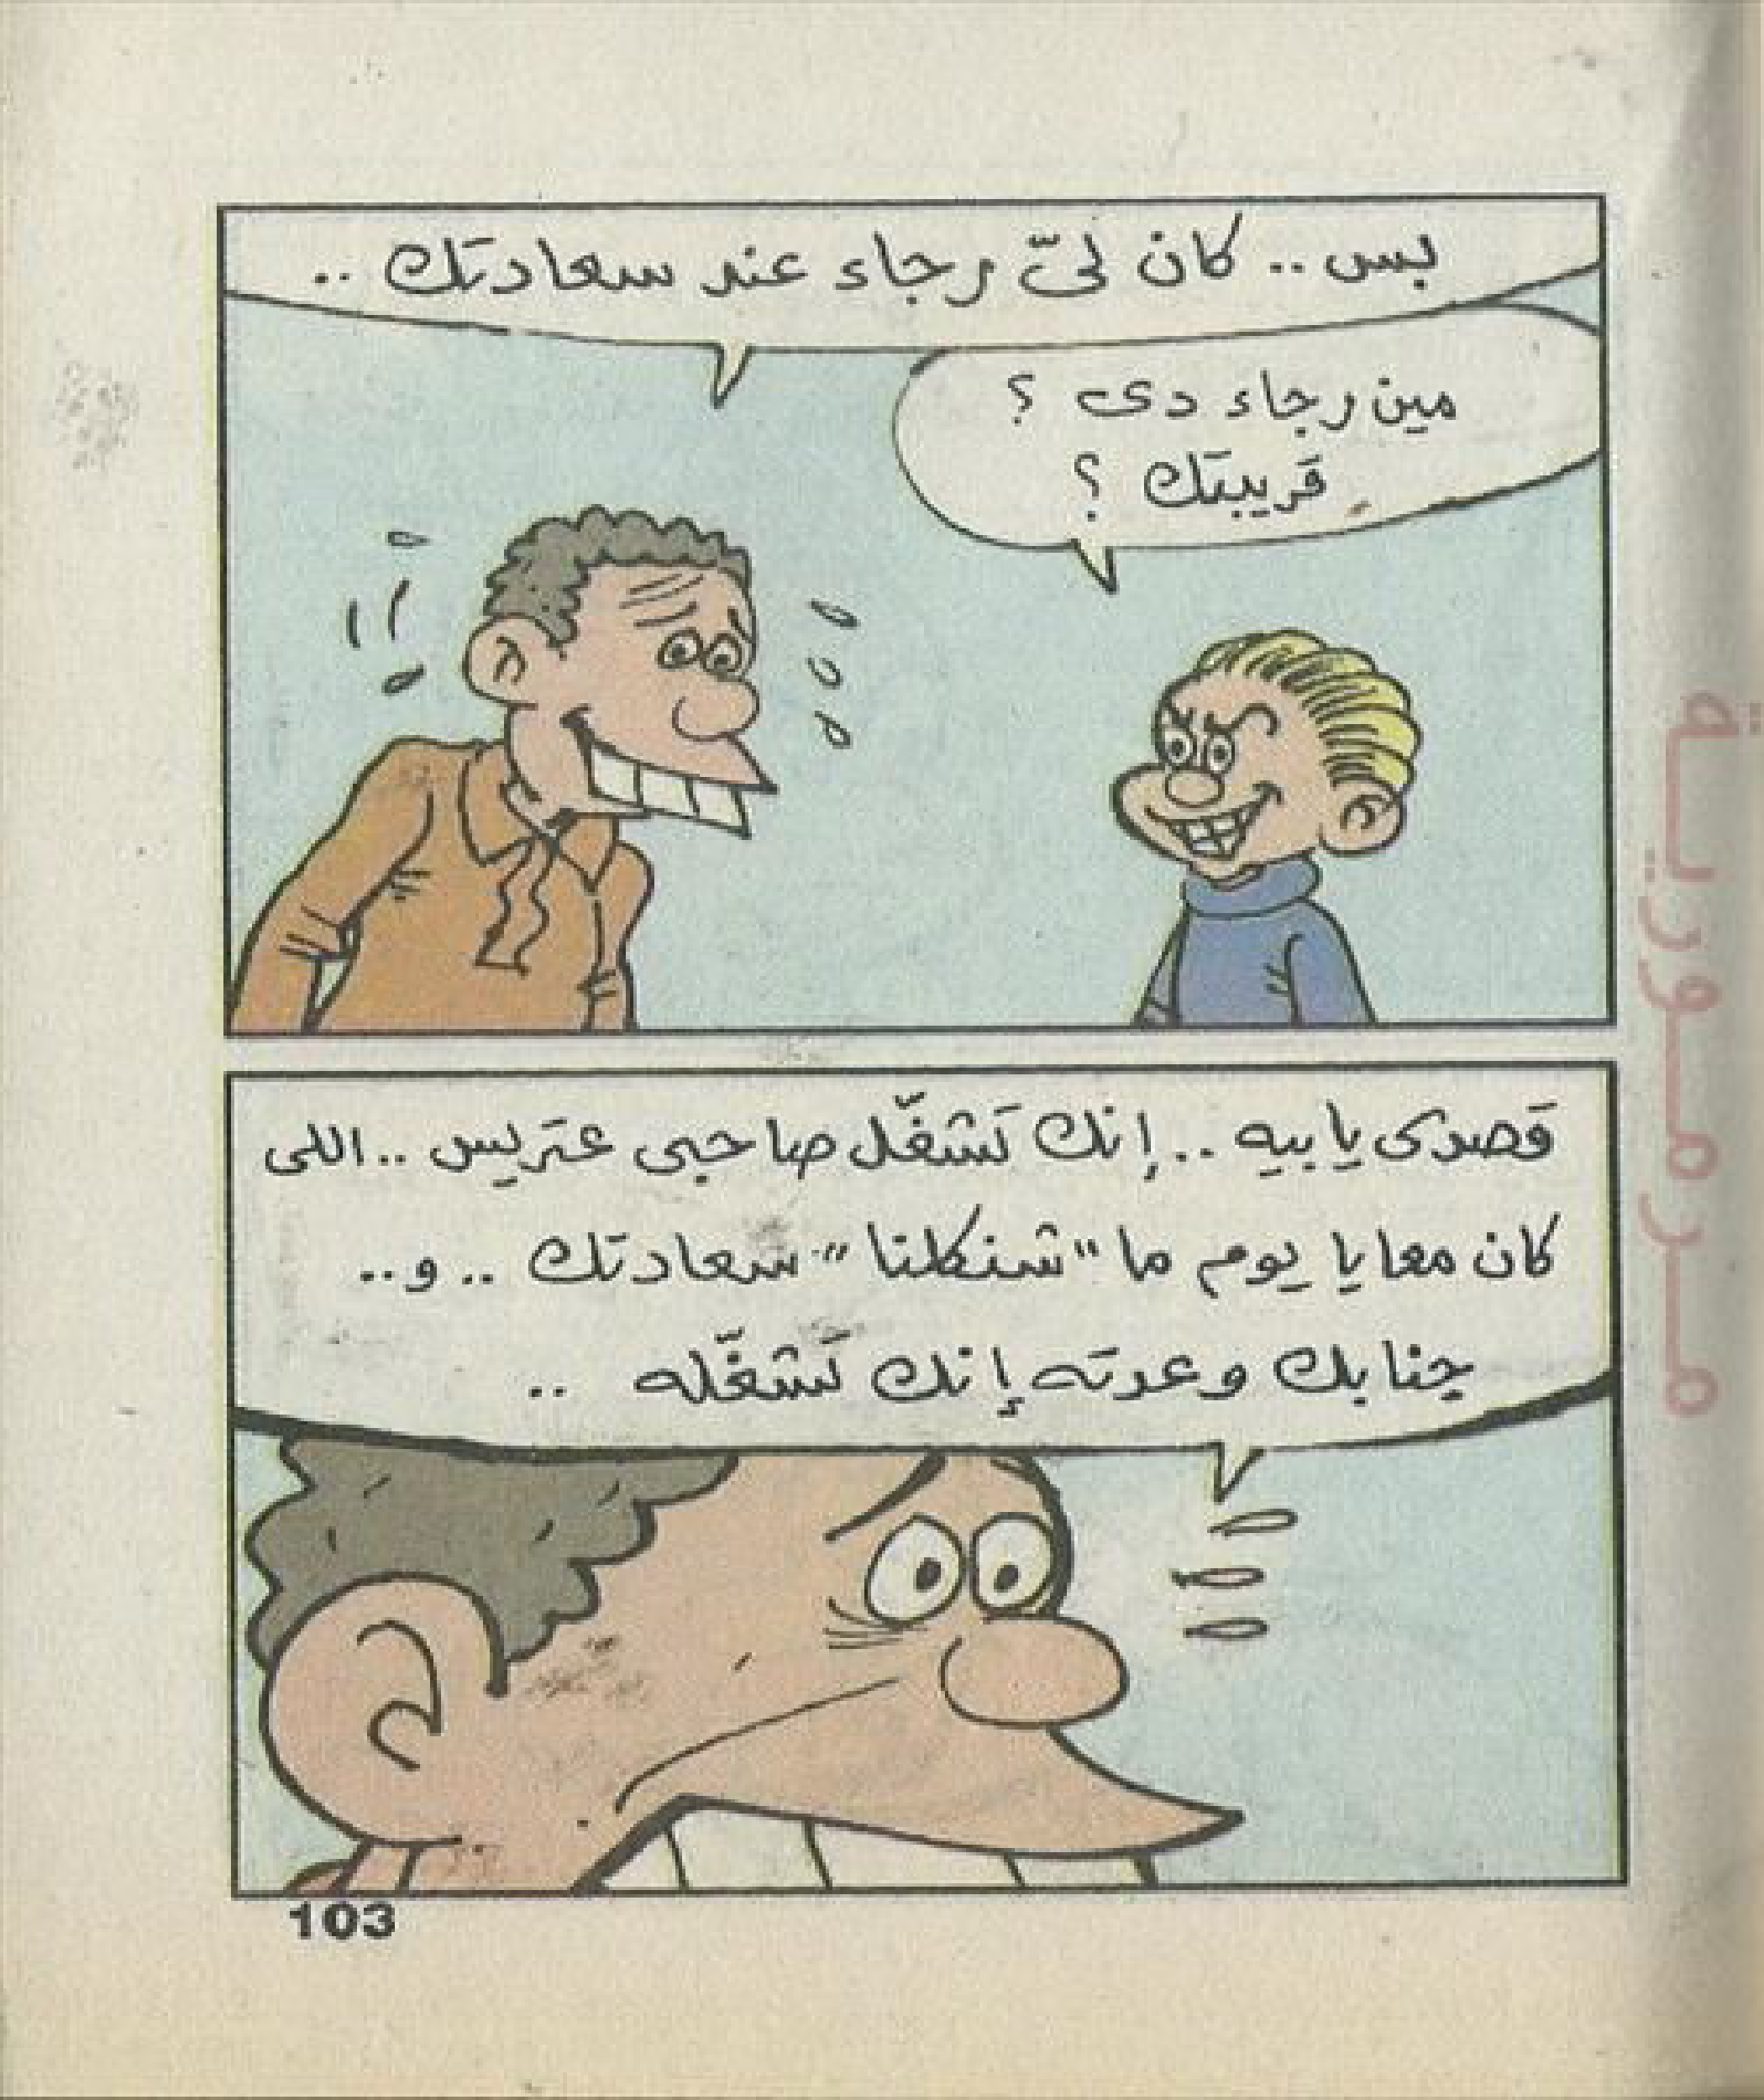 بس .. كان لىّ رجاء عند سعادتك ..
مين رجاء دى ؟
قريبتك ؟
قصدى يا بيه .. إنك تشغّل صاحبى عتريس .. اللى
كان معايا يوم ما "شنكلنا" سعادتك .. و ..
جنابك وعدته إنك تشغّله ..
103